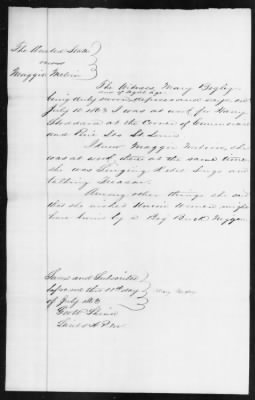 The United States
versus
Maggie Melvin
The Witness, Mary Bogley
over of legal age
being duly sworn deposes and says, on
July 10 1863 I was at work for Harry
at the Corner of Commercial
and Pine Sts St Louis
I know Maggie Melvin, she
was at work there at the same time
she was Singing Rebel Songs and
talking Treason.
Among other things she said
that she wished Union Women might
have twins by a Big Buck Nigger
Sworn and Subscribed
before me this 11th day
of July 1863
Lieut & P.M.